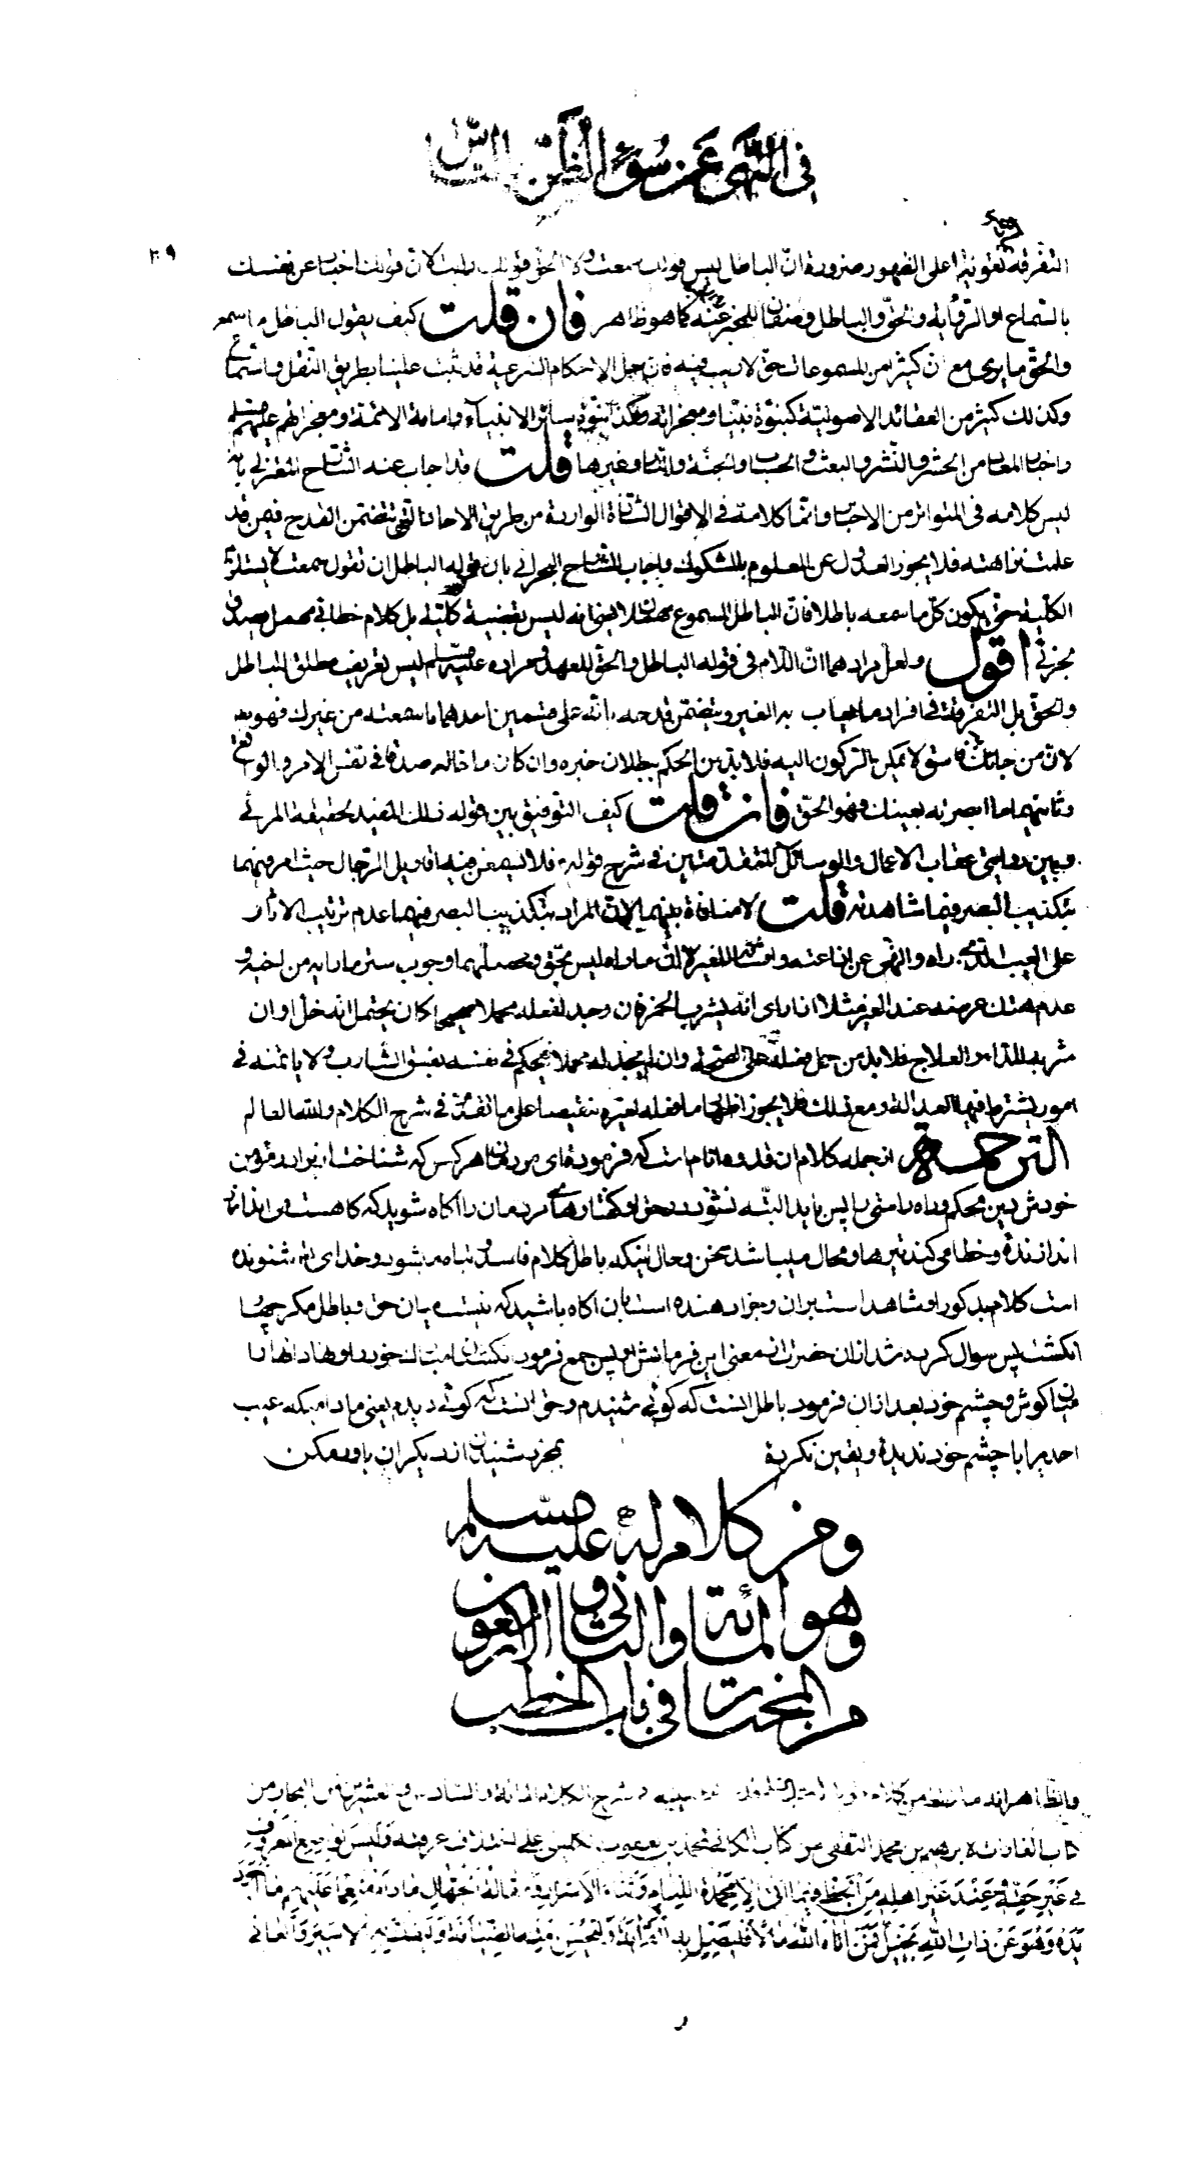 في النهى عن سوء الظن بالناس
٣٠٩
التفرقة تعويلا على الظهور ضرورة انّ الباطل ليس قولك سمعت ولا الحقّ قولك رايت لانّ قولك اخبار عن نفسك
بالسّماع او الرّؤية والحقّ والباطل وصفان للمخبر عنه كما هو ظاهر فان قلت كيف يقول الباطل ما سمع
والحقّ ما يرى مع انّ كثيرا من المسموعات حقّ لا ريب فيه فان جلّ الاحكام الشرعيّة قد ثبت علينا بطريق النّقل والسّماع
وكذلك كثير من العقائد الاصوليّة كنبوّة نبيّنا ومعجزاته وهكذا نبوّة سائر الانبياء وامامة الائمة ومعجزاتهم عليهم السلام
واحوال المعاد من الحشر والنّشر والبعث والحساب والجنّة والنّار وغيرها قلت قد اجاب عنه الشّارح المعتزلي بانّه
ليس كلامه في المتواتر من الاخبار وانّما كلامه في الاقوال الشّاذّة الواردة من طريق الاحاد الّتي تتضمّن القدح فيمن قد
علمت نزاهته فلا يجوز العدول عن المعلوم بالمشكوك واجاب الشّارح البحراني بان قوله الباطل ان تقول سمعت لا يستلزم
الكليّة حتّى يكون كلّ ما سمعه باطلا فانّ الباطل المسموع مهملان اي انه ليس بقضية كليّة بل كلام خطابي مهمل يصدق
بجزئي اقول ولعلّ مرادهما انّ اللّام في قوله الباطل والحق للعهد ومراده عليه السلام ليس تعريف مطلق الباطل
والحق بل التفرقة في افراد ما يعاب به الغير ويتضمّن قدحه بانّه على قسمين احدهما ما سمعته من غيرك فهو باطل
لانّ من جائك فاسق لا يمكن الرّكون اليه فلا بدّ من الحكم ببطلان خبره وان كان ما قاله صدقا في نفس الامر والواقع
وثانيهما ما ابصرته بعينك فهو الحقّ فان قلت كيف التوفيق بين قوله ذلك المفيد لحقيقة المرئي
وبين روايتي عقاب الاعمال والوسائل المتقدّمتين في شرح قوله فلا يسمعنّ فيه اقاويل الرّجال حيث امر فيهما
بتكذيب البصر فيما شاهدته قلت لا منافاة بينهما لانّ المراد بتكذيب البصر فيهما عدم ترتيب الاثار
على العيب الّذي راه والنّهى عن اذاعته وافشائه للغير لا انّ ما راه ليس بحقّ ومحصّلهما وجوب ستر ما راه من اخيه و
عدم هتك عرضه عند الغير مثلا اذا راى انّه يشرب الخمر فان وجد لفعله محملا صحيحا كان يحتمل انه خلّ او ان
شربه للتداوي والعلاج فلا بدّ من حمل فعله على الصحّة وان لم يجد له محملا فيحكم في نفسه بفسق الشّارب ولا ياتمنه في
امور يشترط فيها العدالة ومع ذلك فلا يجوز اظهار ما فعله لغيره تنقيصا على ما تقدّم في شرح الكلام والله العالم
الترجمة از جمله كلام ان قدوه انام است كه فرموده اى مردمان هر كس كه شناخت از برادر مؤمن
خودش دين محكم وراه راستى را پس بايد البتّه نشنود در حق او گفتارهاى مردمان را آگاه شويد كه گاهست مى اندازد
اندازنده و خطا مى كند تيرها و محال ميباشد سخن و حال اينكه باطل كلام فاسد و تباه ميشود و خداى تعالى شنونده
است كلام بد گو را و شاهد است بر ان و جزا دهنده است بان آگاه باشيد كه نيست ميان حق و باطل مگر چهار
انگشت پس سوال كرده شد از ان حضرت از معنى اين فرمايش او پس جمع فرمود انگشتان مبارك خود را و نهاد انها را
ميان گوش و چشم خود بعد از ان فرمود باطل انست كه گوئى شنيدم و حق انست كه گوئى ديدم يعنى مادامیکه عيب
احدى را با چشم خود نديدهٔ و يقين نكردهٔ بمجرد شنيدن از ديگران باور مكن
ومن كلام له عليه السلام
وهو المائة والثاني والاربعون
من المختار في باب الخطب
والظّاهر انه ملتقط من كلام طويل في شرح الكلام المائة والسّادس والعشرين من البحار من
كتاب الغارات لابرهيم بن محمد الثقفى ومن كتاب الكافى لمحمد بن يعقوب الكلينى على اختلاف عرفته وَلَيْسَ لِواضِعِ الْمَعْرُوفِ
في غَيْرِ حَقِّهِ وَعِنْدَ غَيْرِ اهْلِهِ مِنَ الْحَظِّ فيما اَتى اِلّا مَحْمَدَةُ اللِّئامِ وَثَناءُ الاَشْرارِ وَمَقالَةُ الْجُهّالِ ما دامَ مُنْعِما عَلَيْهِمْ ما اَجْوَدَ
يَدَهُ وَهُوَ عَنْ ذاتِ اللهِ بَخيلٌ فَمَنْ اتاهُ اللهُ مالًا فَلْيَصِلْ بِهِ الْقَرابَةَ وَلْيُحْسِنْ مِنْهُ الضِّيافَةَ وَلْيَفُكَّ بِهِ الْاَسيرَ وَالْعانِيَ